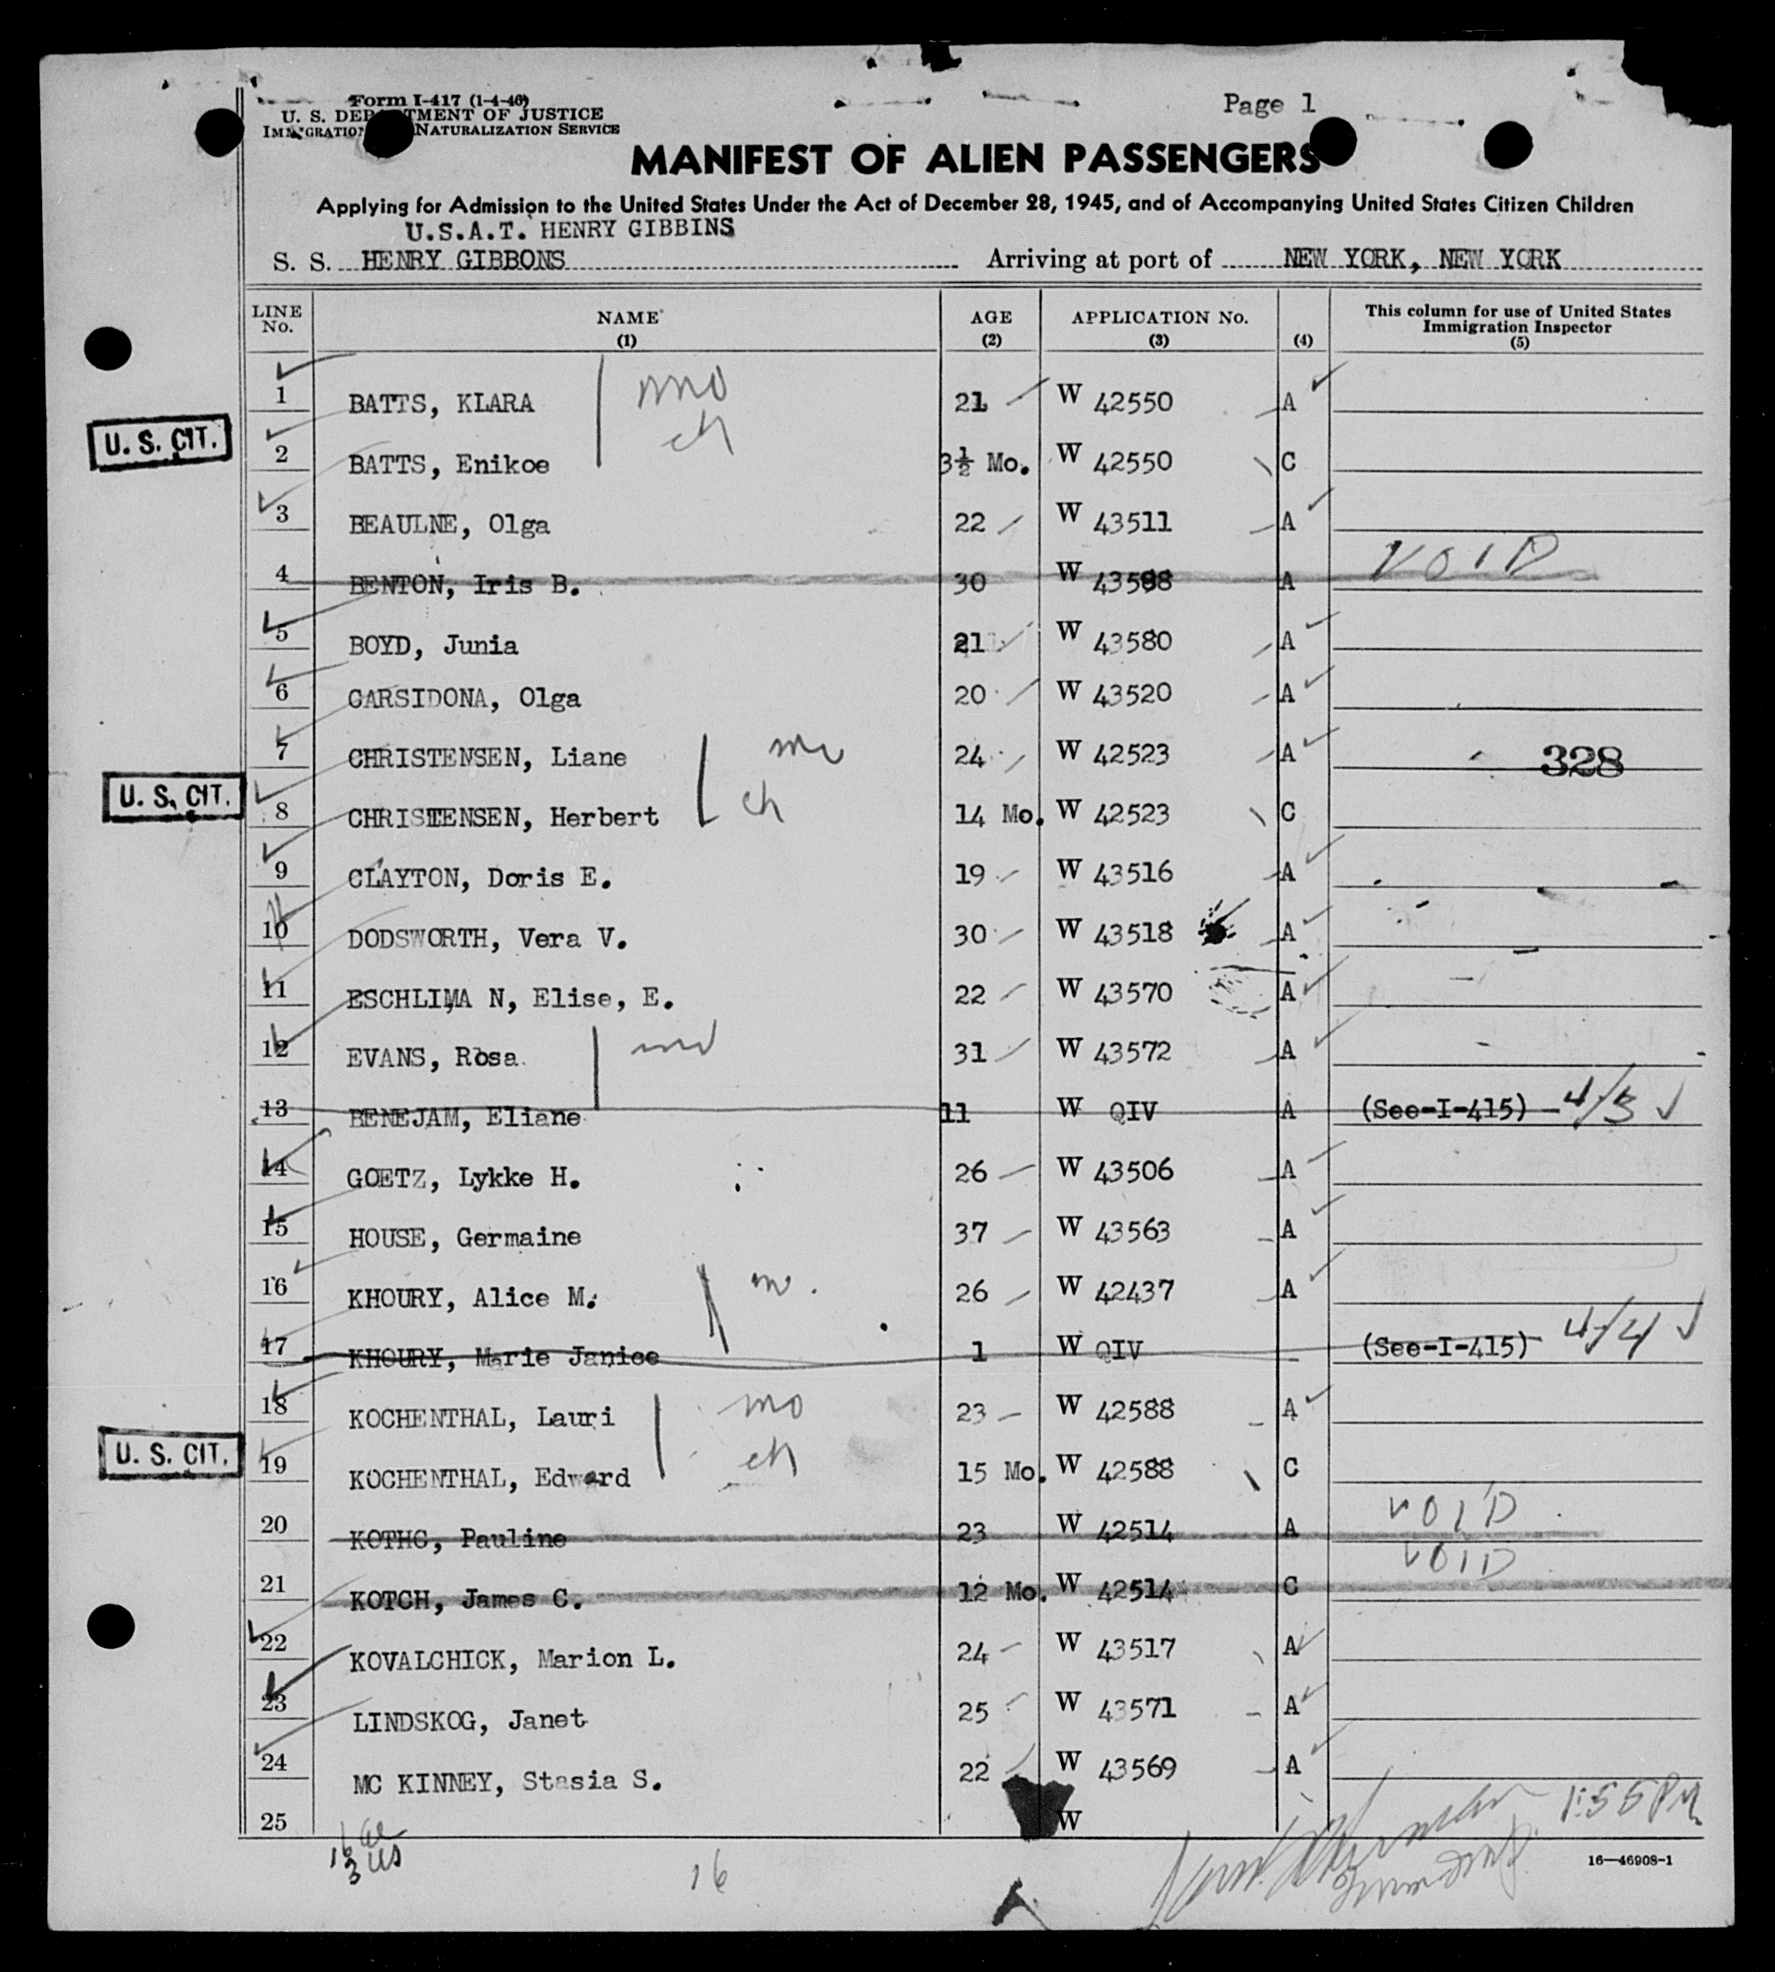 Form I-417 (1-4-46)
Page 1
U. S. DEPARTMENT OF JUSTICE
IMMIGRATION NATURALIZATION SERVICE
MANIFEST OF ALIEN PASSENGERS
Applying for Admission to the United States Under the Act of December 28, 1945, and of Accompanying United States Citizen Children
U.S.A.T. HENRY GIBBINS
S. S. HENRY GIBBONS Arriving at port of NEW YORK, NEW YORK
LINE No. NAME (1) AGE (2) APPLICATION No. (3) (4) This column for use of United States Immigration Inspector (5)
1 BATTS, KLARA mo 21 W 42550 A
U. S. CIT. 2 BATTS, Enikoe ch 3½ Mo. W 42550 C
3 BEAULNE, Olga 22 W 43511 A
4 BENTON, Iris B. 30 W 43598 A VOID
5 BOYD, Junia 21 W 43580 A
6 GARSIDONA, Olga 20 W 43520 A
7 CHRISTENSEN, Liane mo 24 W 42523 A 328
U. S. CIT. 8 CHRISTENSEN, Herbert ch 14 Mo. W 42523 C
9 CLAYTON, Doris E. 19 W 43516 A
10 DODSWORTH, Vera V. 30 W 43518 A
11 ESCHLIMA N, Elise, E. 22 W 43570 A
12 EVANS, Rosa mo 31 W 43572 A
13 BENEJAM, Eliane 11 W QIV A (See-I-415) 4/3
14 GOETZ, Lykke H. 26 W 43506 A
15 HOUSE, Germaine 37 W 43563 A
16 KHOURY, Alice M. m. 26 W 42437 A
17 KHOURY, Marie Janice 1 W QIV (See-I-415) 4/4
18 KOCHENTHAL, Lauri mo 23 W 42588 A
U. S. CIT. 19 KOCHENTHAL, Edward ch 15 Mo. W 42588 C
20 KOTHC, Pauline 23 W 42514 A VOID
21 KOTCH, James C. 12 Mo. W 42514 C VOID
22 KOVALCHICK, Marion L. 24 W 43517 A
23 LINDSKOG, Janet 25 W 43571 A
24 MC KINNEY, Stasia S. 22 W 43569 A
25 W 1:55 PM
16
3 US
16
16—46908-1